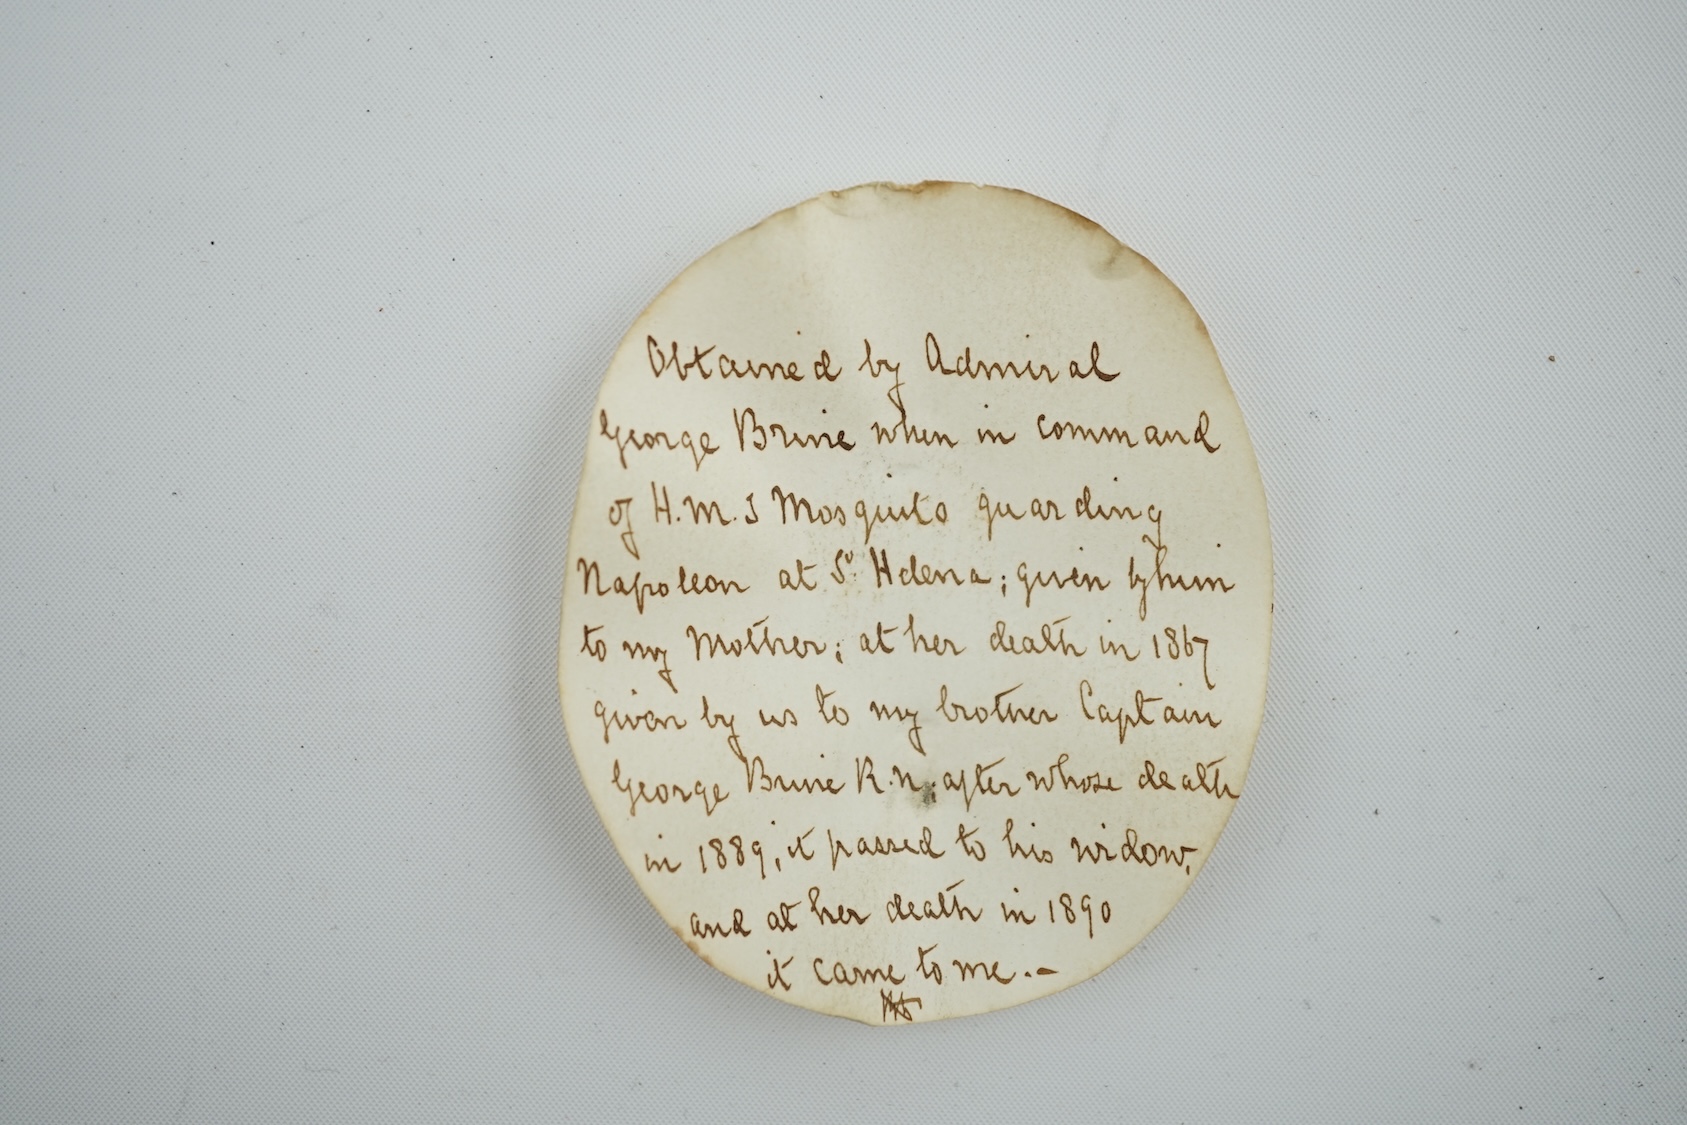 Obtained by Admiral
George Brine when in command
of H.M.S Mosquito guarding
Napoleon at St. Helena; given by him
to my Mother; at her death in 1867
given by us to my brother Captain
George Brine R.N; after whose death
in 1889, it passed to his widow,
and at her death in 1890
it came to me.-